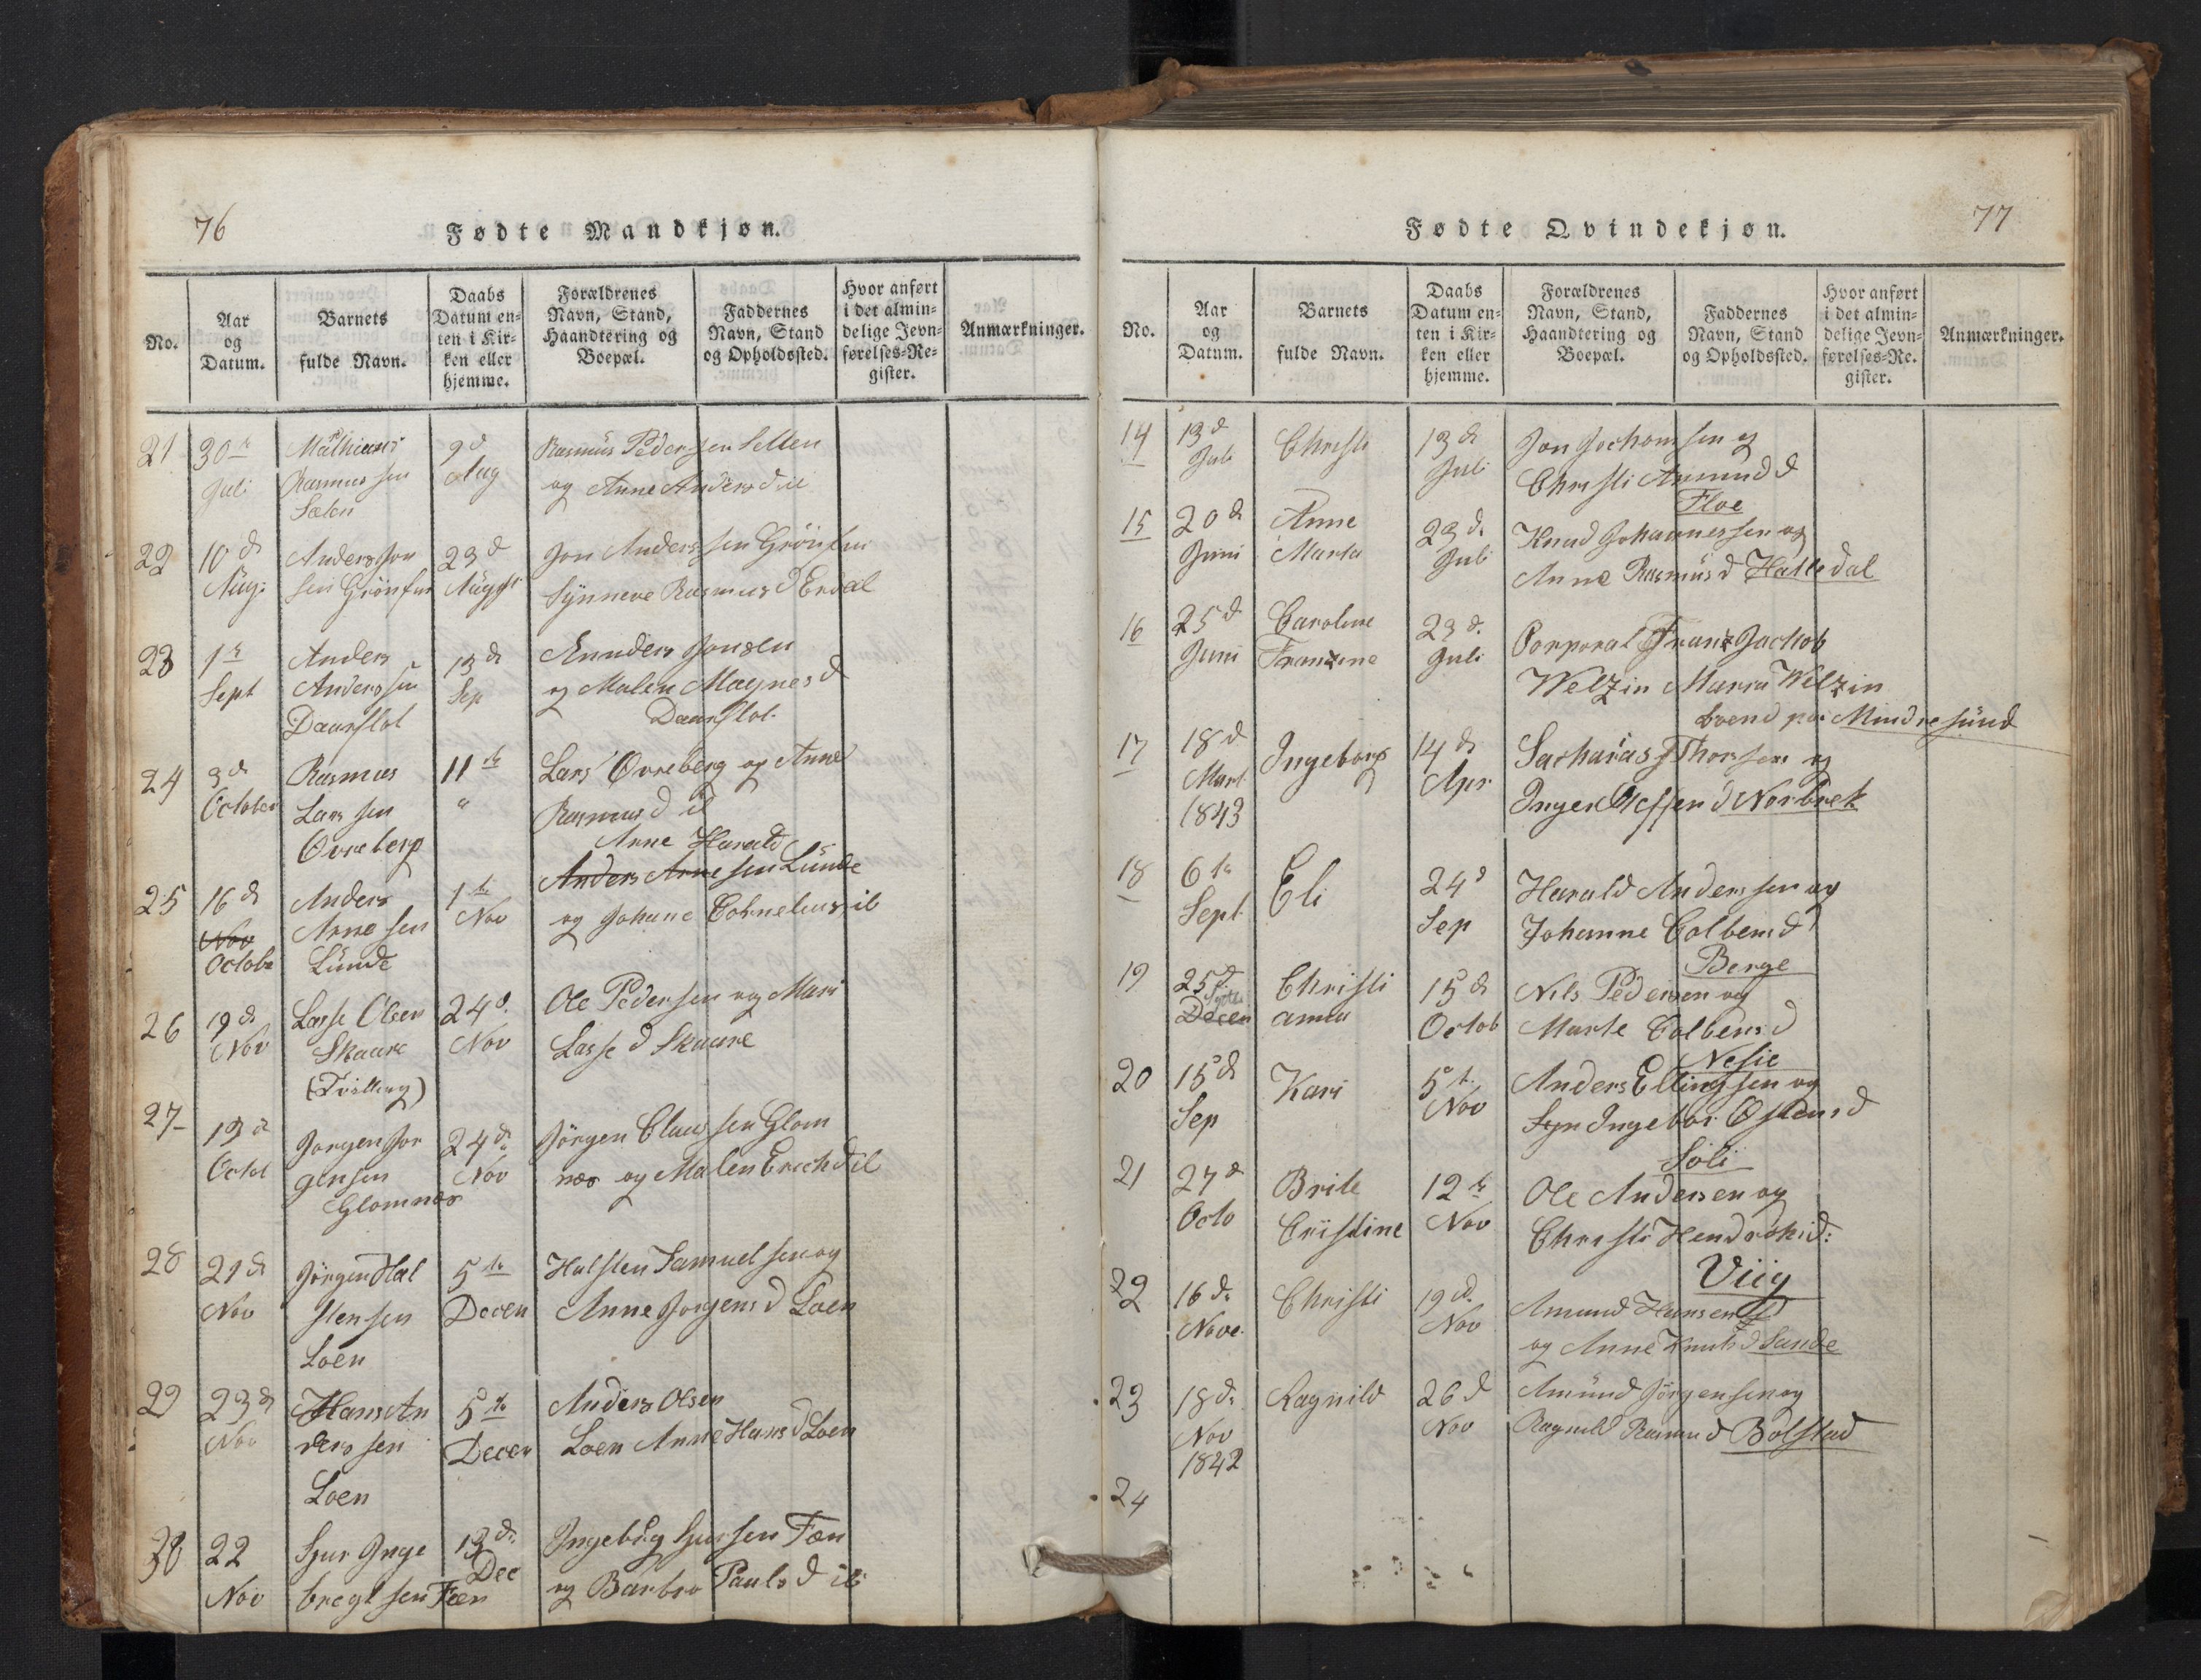 76
Fødte Mandkjøn.
No.
Aar
og
Datum.
Barnets
fulde Navn.
Daabs
Datum en-
ten i Kir-
ken eller
hjemme.
Forældrenes
Navn, Stand,
Haandtering og
Boepæl.
Faddernes
Navn, Stand
og Opholdssted.
Hvor anført
i det almin-
delige Jevn-
førelses-Re-
gister.
Anmærkninger.
21
30te
Juli
Rasmussen
Sælen
9d
Aug
Rasmus Pedersen Sellen
og Anne Andersd il
22
10d
Aug:
Anders Jon
sen
23d
Jon Anderssen
Synneve Rasmusd
23
1te
Sept
Anders
Anderssen
13d
Sep
Jonsen
og Malen Magnesd
24
3d
October
Rasmus
Lars sen
Ovreberg
11te
"
Lars Ovreberg og Anne
Rasmusd il
25
16d
Nov
Octobe
Anders
Arnesen
Lunde
1te
Nov
Arne Harald
Anders Arnesen Lunde
og Johane Cornelius il
26
19d
Nov
Lasse Olsen
Skaare
(Tvilling)
24d
Nov
Ole Pedersen og Mari
Lassed Skaare
27
13d
Octob
Jorgen Jor
gensen
Glomnæs
24d
Nov
Jörgen Clausen Glom
næs og Malen Erichd il
28
21d
Nov
Jörgen Hal
stensen
Loen
5te
Decen
Halsten Samuelsen og
Anne Jorgensd Loen
29
23d
Nov
Hans An
derssen
Loen
5te
Decen
Anders Olsen
Loen Anne Hansd Loen
30
22
Nov
Sjur Inge
bregtsen
13d
Dec
og Barbro Paulsd il
77
Fødte Qvindekjøn.
No.
Aar
og
Datum.
Barnets
fulde Navn.
Daabs
Datum en-
ten i Kir-
ken eller
hjemme.
Forældrenes
Navn, Stand,
Haandtering og
Boepæl.
Faddernes
Navn, Stand
og Opholdssted.
Hvor anført
i det almin-
delige Jevn-
førelses-Re-
gister.
Anmærkninger.
14
13d
Juli
Christi
13d
Juli
Jon Jochomsen og
Christi Amundd
Floe
15
20d
Juni
Anne
Marta
23d.
Juli
Knud Johannessen og
Anne Rasmusd Hattedal
16
25d
Juni
Caroline
Franzine
23d.
Juli
Corporal Franz Jachob
Welzin Maria Welzin
boend paa Mindresund
17
18d
Mart
1843
Ingeborg
14d
Apr
Sacharias Thorsen og
Inger Steffend Norbrek
18
6te
Sept
Eli
24d
Sep
Harald Anderssen og
Johanne Colbensd
Berge
19
25d
Decen
Christi
anna
15d
Octob
Nils Pedersen og
Marte Colbensd
Nesie
20
15d
Sep
Kari
5te
Nov
Anders Ellingsen og
Ingebor Ostensd
21
27d
Octo
Brite
Cristine
12te
Nov
Ole Andersen og
Christi Hendrikd:
Viig
22
16d.
Nove
Christi
19d.
Nov
Amund Hansen
og Anne Knutsd Sande
23
18d.
Nov
1842
Ragnild
26d
Nov
Amund Jörgensen og
Ragnild Rasmusd Bolstad
24